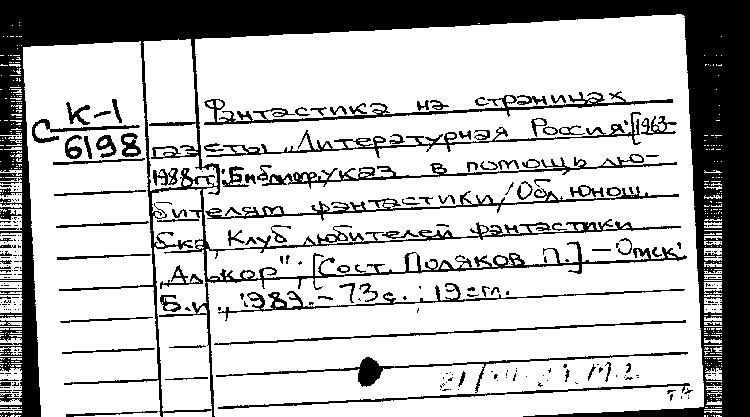 К-1
С 6198
Фантастика на страницах
газеты „Литературная Россия" [1963-
1988 гг.]: Библиогр. указ. в помощь лю-
бителям фантастики / Обл. юнош.
б-ка, Клуб любителей фантастики
„Алькор"; [Сост. Поляков П.]. - Омск:
Б.и., 1989. - 73 с.; 19 см.